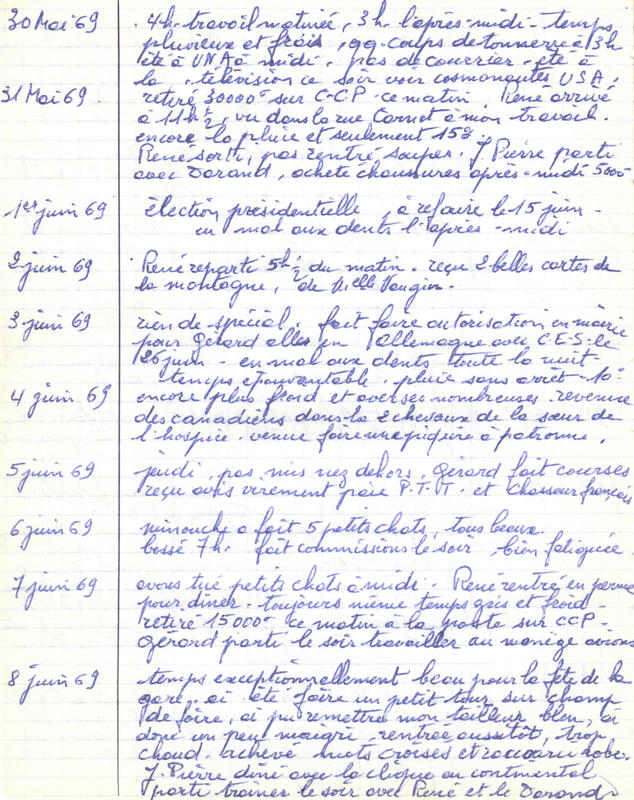 30 Mai 69 . 4h. travail matinée, 3h. l'après-midi - temps
pluvieux et frais, qq. coups de tonnerre à 13h
été à UNA à midi. pas de courrier - été à
la télévision ce soir voir cosmonautes USA.
31 Mai 69. retiré 30000F sur C.C.P. ce matin. René arrivé
à 11h ½, vu dans la rue Carnot à mon travail.
encore la pluie et seulement 15°.
René sorti, pas rentré souper. J. Pierre parti
avec Dorand, acheté chaussures après-midi 5000
1er juin 69 élection présidentielle, à refaire le 15 juin -
eu mal aux dents l'après-midi
2 juin 69 René reparti 5h ½ du matin. reçu 2 belles cartes de
la montagne, de Melle Vaugin.
3 juin 69 rien de spécial. fait faire autorisation en mairie
pour Gérard aller en Allemagne avec C.E.S. le
26 juin - eu mal aux dents toute la nuit -
temps épouvantable. pluie sans arrêt - 10°
4 juin 69 encore plus froid et averses nombreuses. revenue
des canadiens dans la 2 chevaux de la sœur de
l'hospice. venue faire une piqûre à patronne.
5 juin 69 jeudi. pas mis nez dehors. Gérard fait courses
reçu avis virement paie P.T.T. et chasseur français
6 juin 69 minouche a fait 5 petits chats, tous beaux.
bossé 7h. fait commissions le soir. bien fatiguée.
7 juin 69 avons tué petits chats à midi. René rentre en perme
pour dîner. toujours même temps gris et froid -
retiré 15000F ce matin à la poste sur CCP -
Gérard parti le soir travailler au manège avions
8 juin 69 temps exceptionnellement beau pour la fête de la
gare. ai été faire un petit tour sur champ
de foire, ai pu remettre mon tailleur bleu, ai
donc un peu maigri. rentrée aussitôt, trop
chaud. achevé mots croisés et raccourci robe.
J. Pierre dîné avec la clique au continental
parti traîner le soir avec René et le Dorand.